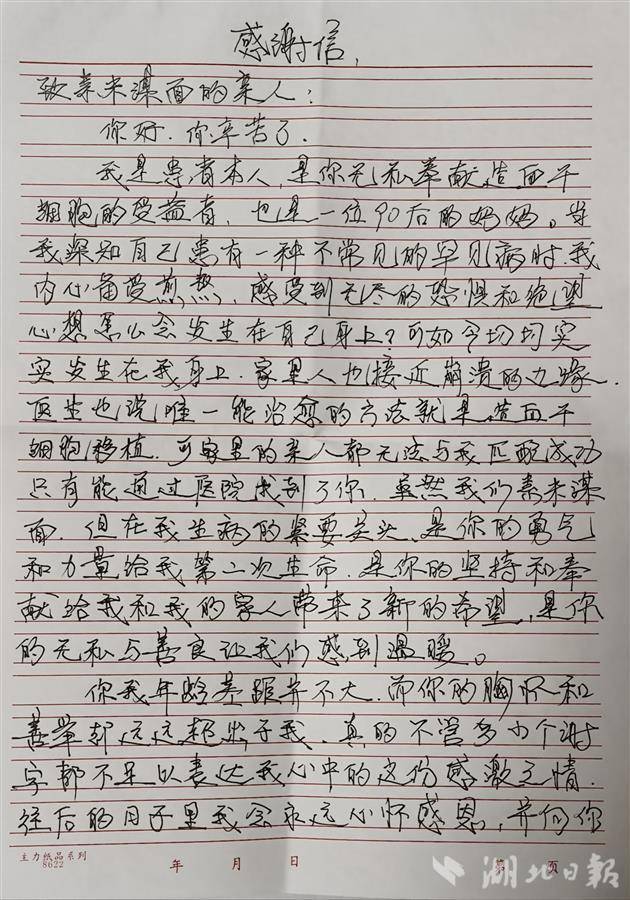 感谢信,
致素未谋面的亲人:
你好.你辛苦了.
我是患者本人,是你无私奉献造血干
细胞的受益者,也是一位90后的妈妈。当
我深知自己患有一种不常见的罕见病时我
内心备受煎熬,感受到无尽的恐惧和绝望
心想怎么会发生在自己身上?可如今切切实
实发生在我身上.家里人也接近崩溃的边缘.
医生也说唯一能治愈的方法就是造血干
细胞移植.可家里的亲人都无法与我匹配成功
只有能通过医院找到了你.虽然我们素未谋
面.但在我生病的紧要关头,是你的勇气
和力量给我第二次生命.是你的坚持和奉
献给我和我的家人带来了新的希望,是你
的无私与善良让我们感到温暖。
你我年龄差距并不大.而你的胸怀和
善举却远远超出于我.真的不管多少个
字都不足以表达我心中的这份感激之情.
往后的日子里我会永远心怀感恩,并向你
主力纸品系列
8622
年 月 日
第 页
湖北日報